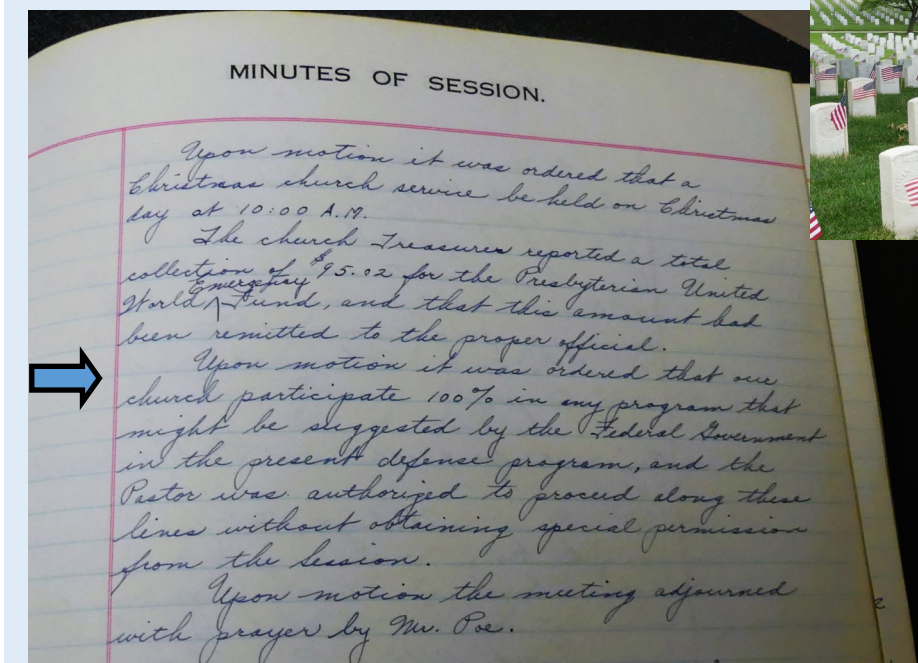 MINUTES OF SESSION.
Upon motion it was ordered that a
Christmas church service be held on Christmas
day at 10:00 A.M.
The church Treasurer reported a total
collection of $95.02 for the Presbyterian United
World Emergency Fund, and that this amount had
been remitted to the proper official.
Upon motion it was ordered that our
church participate 100% in any program that
might be suggested by the Federal Government
in the present defense program, and the
Pastor was authorized to proceed along these
lines without obtaining special permission
from the Session.
Upon motion the meeting adjourned
with prayer by Mr. Poe.